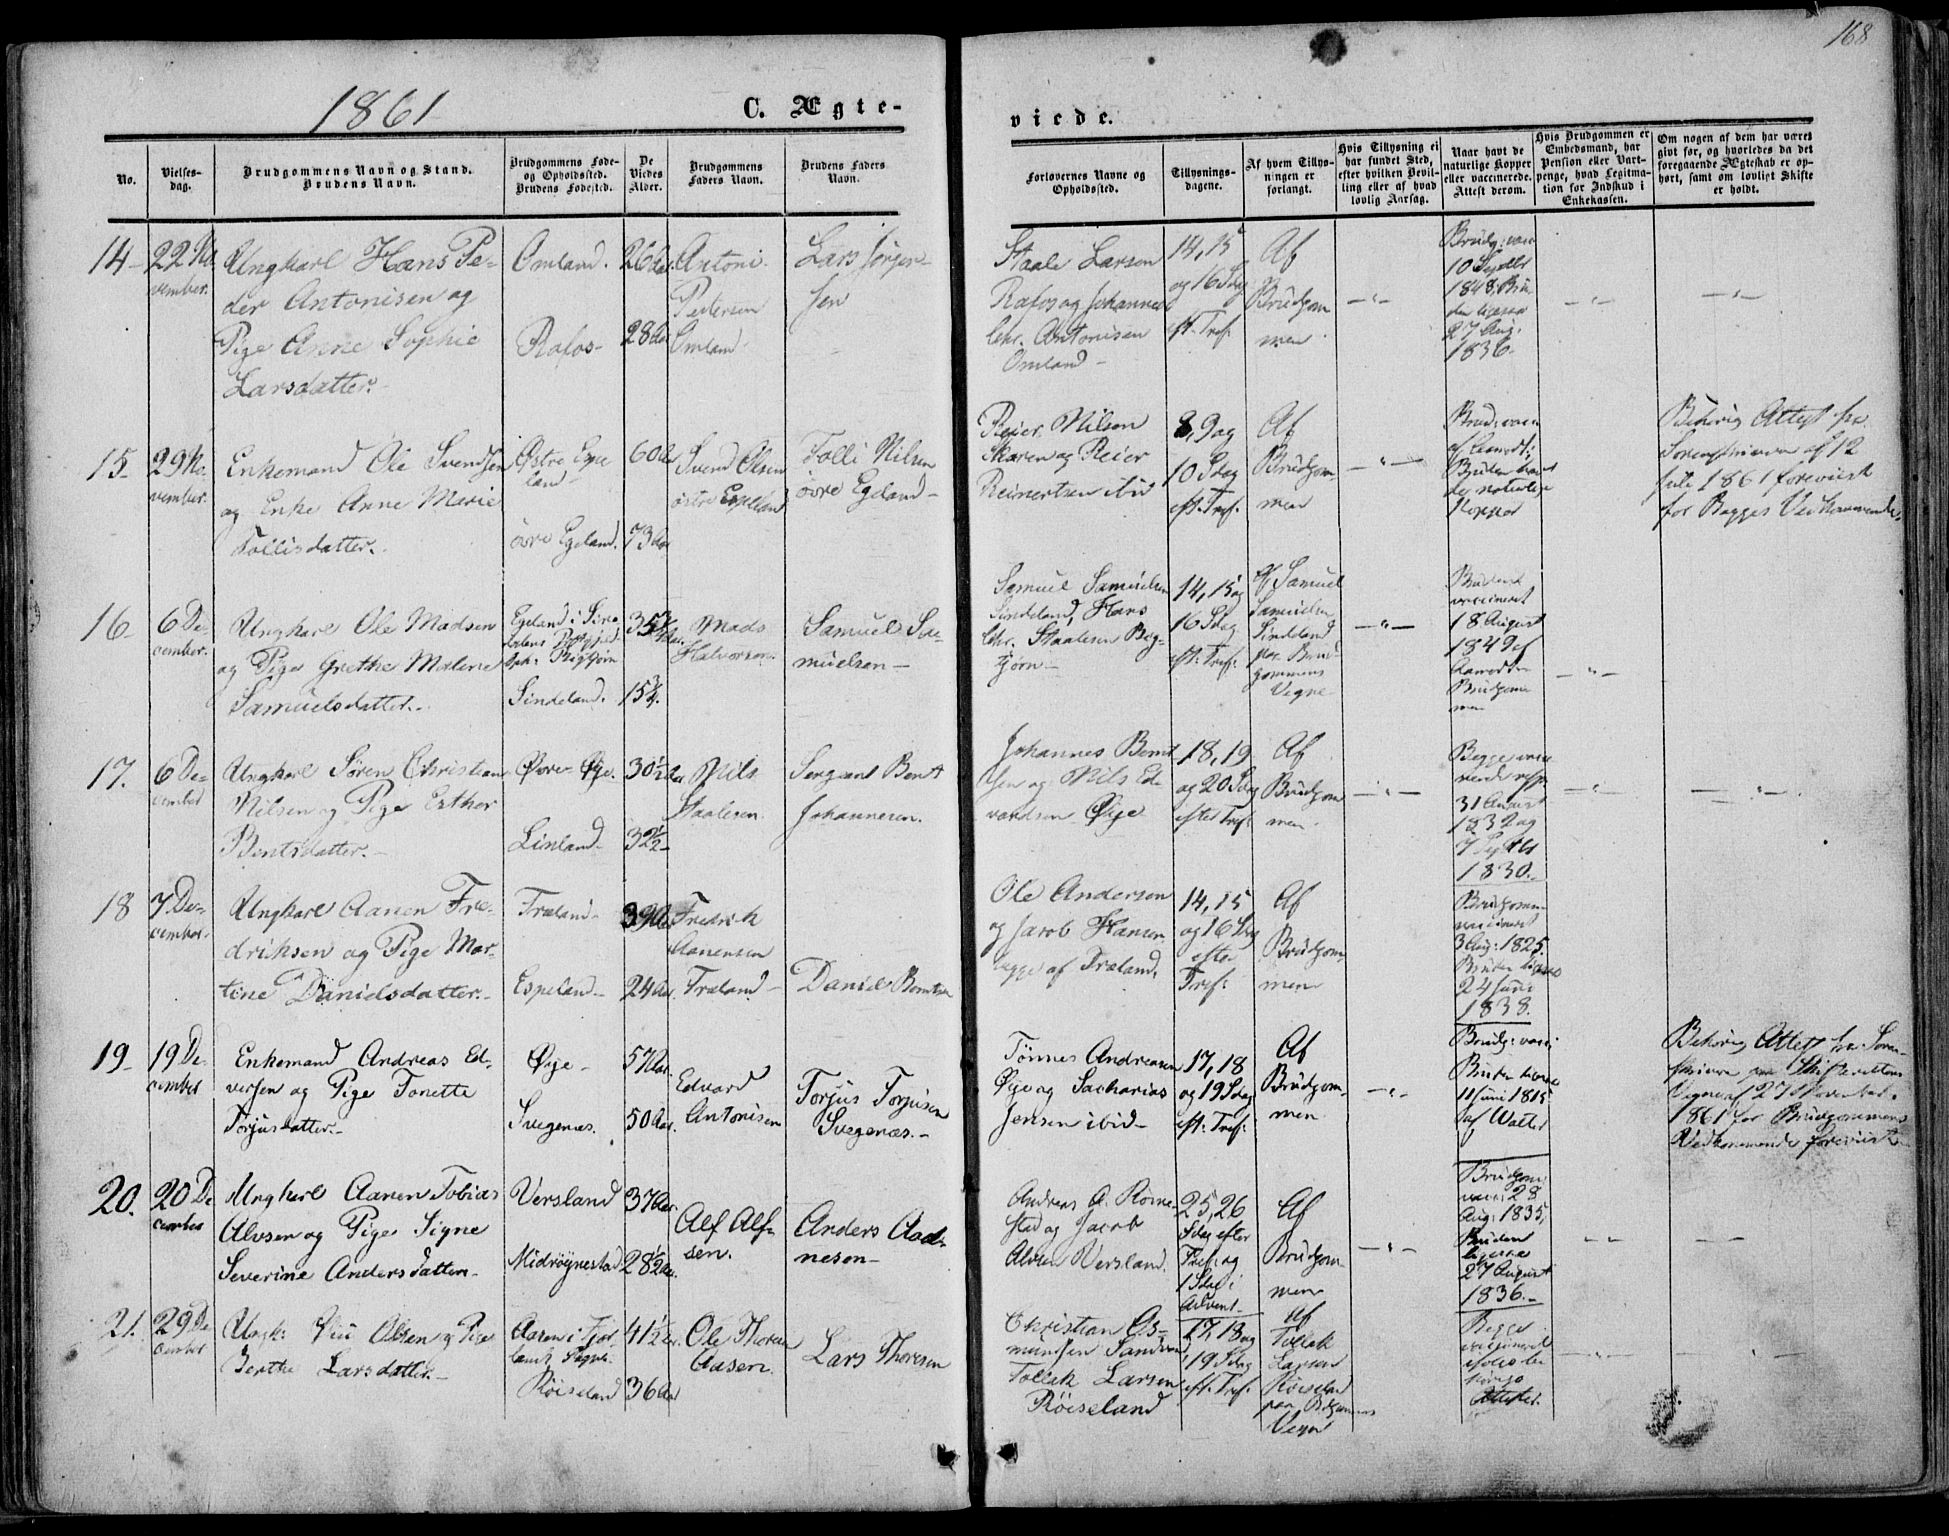 168
1861
C. Ægte-
viede.
No.
Vielses-
dag.
Brudgommens Navn og Stand.
Brudens Navn.
Brudgommens Føde-
og Opholdssted.
Brudens Fødested.
De
Viedes
Alder.
Brudgommens
Faders Navn.
Brudens Faders
Navn.
Forlovernes Navne og
Opholdssted.
Tillysnings-
dagene.
Af hvem Tillys-
ningen er
forlangt.
Hvis Tillysning ei
har fundet Sted,
efter hvilken Bevil-
ling eller af hvad
lovlig Aarsag.
Naar havt de
naturlige Kopper
eller vaccinerede.
Attest derom.
Hvis Brudgommen er
Embedsmand, har
Pension eller Vart-
penge, hvad Legitma-
tion for Indskud i
Enkekassen.
Om nogen af dem har været
givt før, og hvorledes da det
foregaaende Ægteskab er op-
hørt, samt om lovligt Skifte
er holdt.
14-
22 No-
vember.
Ungkarl Hans Pe-
der Antonisen og
Pige Anne Sophie
Larsdatter.-
Omland.
Rafos-
26 Aar.
28 Aar
Antoni
Pedersen
Omland-
Lars Jørgen-
sen
Staale Larsen
Rafos og Johannes
Chr. Antonisen
Omland-
14, 15
og 16 Sdag
eft: Tref:
Af
Brudgom
men.
Brudg: vacc
10 Septbr
1848, Bru
den ligesaa
27 Aug.
1836.
15.
29 No-
vember.
Enkemand Ole Svendsen
og Enke Anne Marie
Tollisdatter.
Østre Espe
land-
övre Egeland.
60 Aar
73 Aar
Svend Olsen
östre Espeland
Tolli Nilsen
övre Egeland-
Reier Nilsen
Skaren og Reier
Reinertsen ibid
8, 9 og
10 Sdag
eft. Tref.
Af
Brudgom-
men
Brudg: vacc
Bruden havt
de naturlige
Kopper
Behørig Attest fra
Sorenskriveren af 12
Juli 1861 foreviist
for Begges Vedkommende.
16-
6 De-
cember.
Ungkarl Ole Madsen
og Pige Grethe Malene
Samuelsdatter.-
Egeland i Sire
dalens Præstegjeld
Bigtjörn
Sindeland.
35¾ Aar.
15¾.
Mads
Halvorsen.
Samuel Sa-
muelsen-
Samuel Samuelsen
Sindeland, Hans
Chr. Staalesen Big-
tjörn-
14, 15 og
16 Sdag
eft: Tref:
Af Samuel
Samuelsen
Sindland
paa Brud-
gommens
Vegne
Bruden
vaccineret
18 August
1849 af
Aamodt
Brudgom
men
17.
6 De-
cember
Ungkarl Sören Christian
Nilsen og Pige Esther
Bentsdatter.-
Övre Øye.
Linland-
30½ Aar
32½-
Nils
Staalesen
Sergeant Bent
Johannesen.
Johannes Bernt
sen og Nils Ed-
vardsen Øye
18, 19
og 20 Sdag
efter Tref:
Af
Brudgom
men.
Begge vacci
nerede resp:
31 August
1832 og
7 Septbr
1830.-
18
7 De-
cember.
Ungkarl Aanen Fre-
driksen og Pige Mar-
tine Danielsdatter.-
Træland-
Espeland-
39 Aar
24 Aar.
Fredrik
Aanensen
Træland-
Daniel Berntsen
Ole Andersen
og Jacob Hansen
begge af Træland.
14, 15
og 16 Sdag
efter
Tref:
Af
Brudgom-
men
Brudgom-
vaccineret
3 Aug: 1825
Bruden ligesaa
24 Juni
1838.
19-
19 De-
cember
Enkemand Andreas Ed-
versen og Pige Tonette
Torjusdatter.-
Øye-
Svegenæs.
57 Aar.
50 Aar.
Edvard
Antonisen
Torjus Torjusen
Svegenæs.-
Tønnes Andreasen
Øye og Sacharias
Jensen ibid-
17, 18
og 19 Sdag
eft. Tref:
Af
Brudgom-
men
Brudg: vacci
Bruden ligesaa
11 Juni 1815
af Walter
Behørig Attest fra Soren-
skriveren paa Skifterettens
Vegne af 27 November
1861 for Brudgommens
Vedkommende foreviist-
20.
20 De
cember
Ungkarl Aanen Tobias
Alvsen og Pige Signe
Severine Andersdatter.-
Versland
Midröynestad
37 Aar
28½ Aar.
Alf Alf-
sen.
Anders Aad-
neson-
Andreas A. Röine-
stad og Jacob
Alvsen Versland.
25, 26
Sdag efter
Tref: og
1 Sdag i
Advent-
Af
Brudgom-
men
Brudgom
vacc: 28
Aug: 1835,
Bruden
ligesaa
27 August
1836.-
21.
29 De
cember
Ungk: Olsen og Pige
Berthe Larsdatter.-
Aasen i Fjot
land Sogn.
Röiseland
41½ Aar
36 Aar
Ole Thoresen
Aasen.
Lars Thoresen
Christian As-
mundsen Sandven
Tollak Larsen
Röiseland
17, 18 og
19 Sdag
eft. Tref.
Af
Tollak
Larsen
Röiseland
paa Brdgommens
Vegne
Begge
vaccineret
ifölge
Attester.